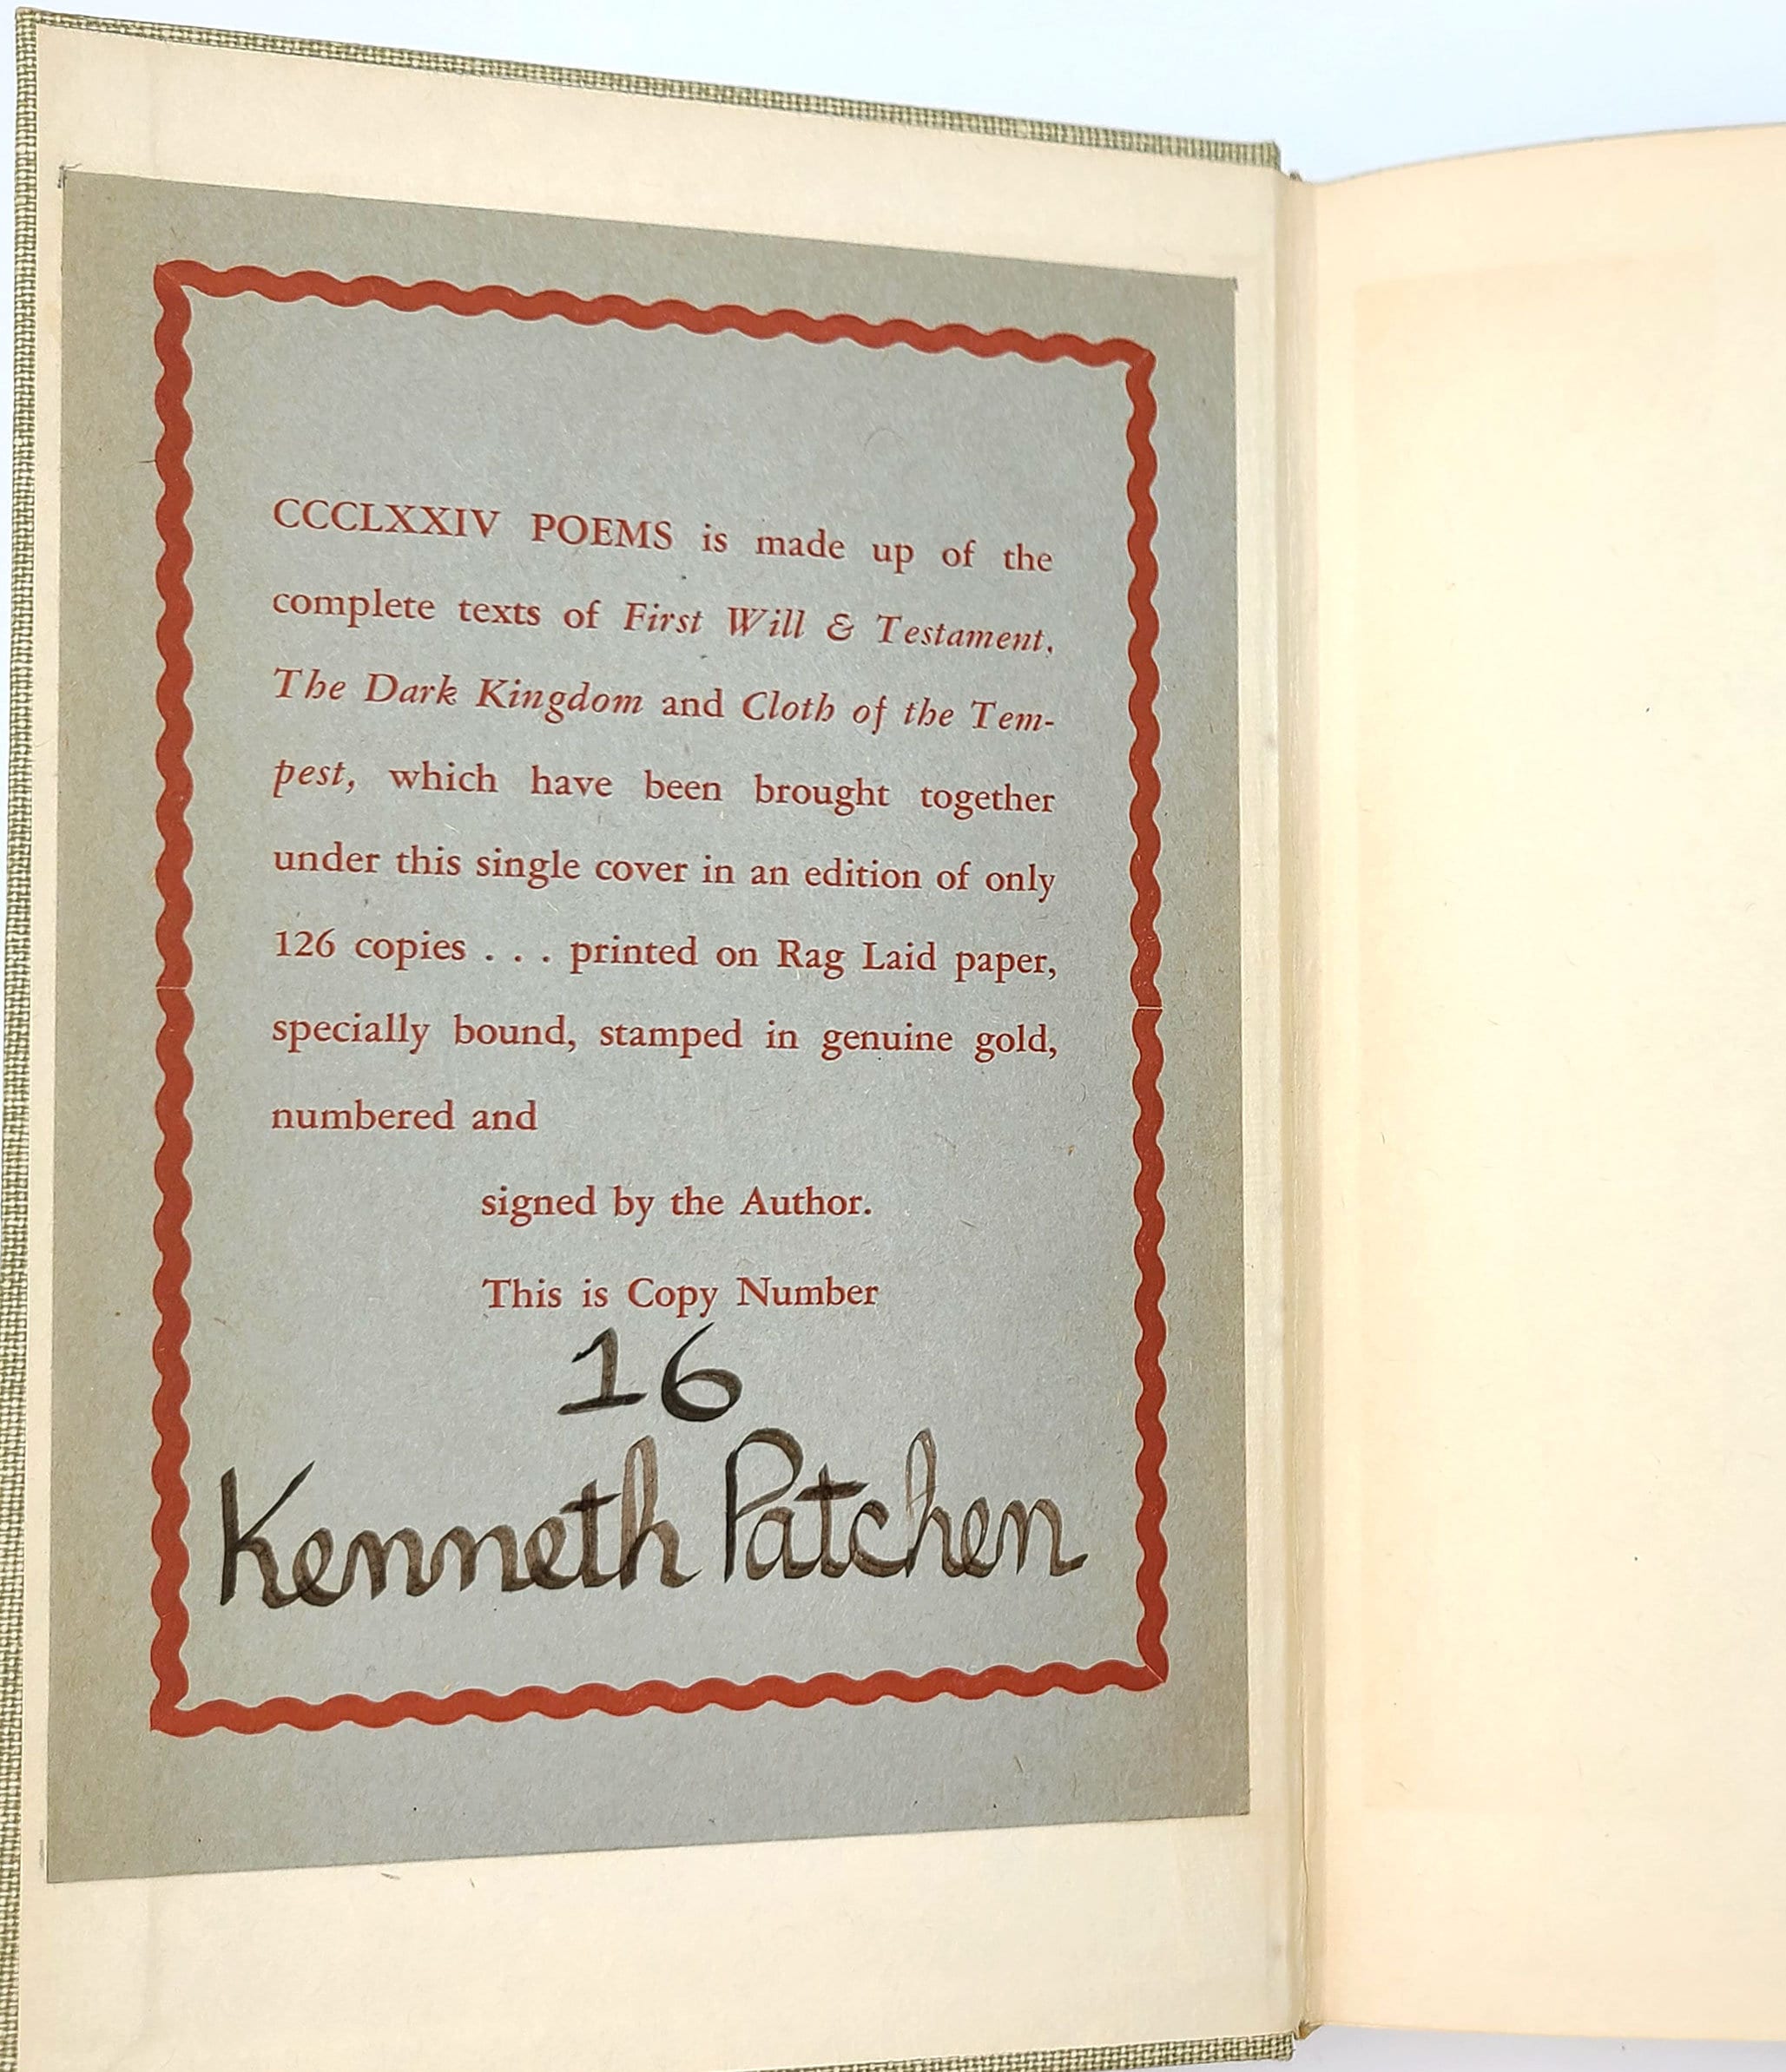 CCCLXXIV POEMS is made up of the
complete texts of First Will & Testament,
The Dark Kingdom and Cloth of the Tem-
pest, which have been brought together
under this single cover in an edition of only
126 copies . . . printed on Rag Laid paper,
specially bound, stamped in genuine gold,
numbered and
signed by the Author.
This is Copy Number
16
Kenneth Patchen